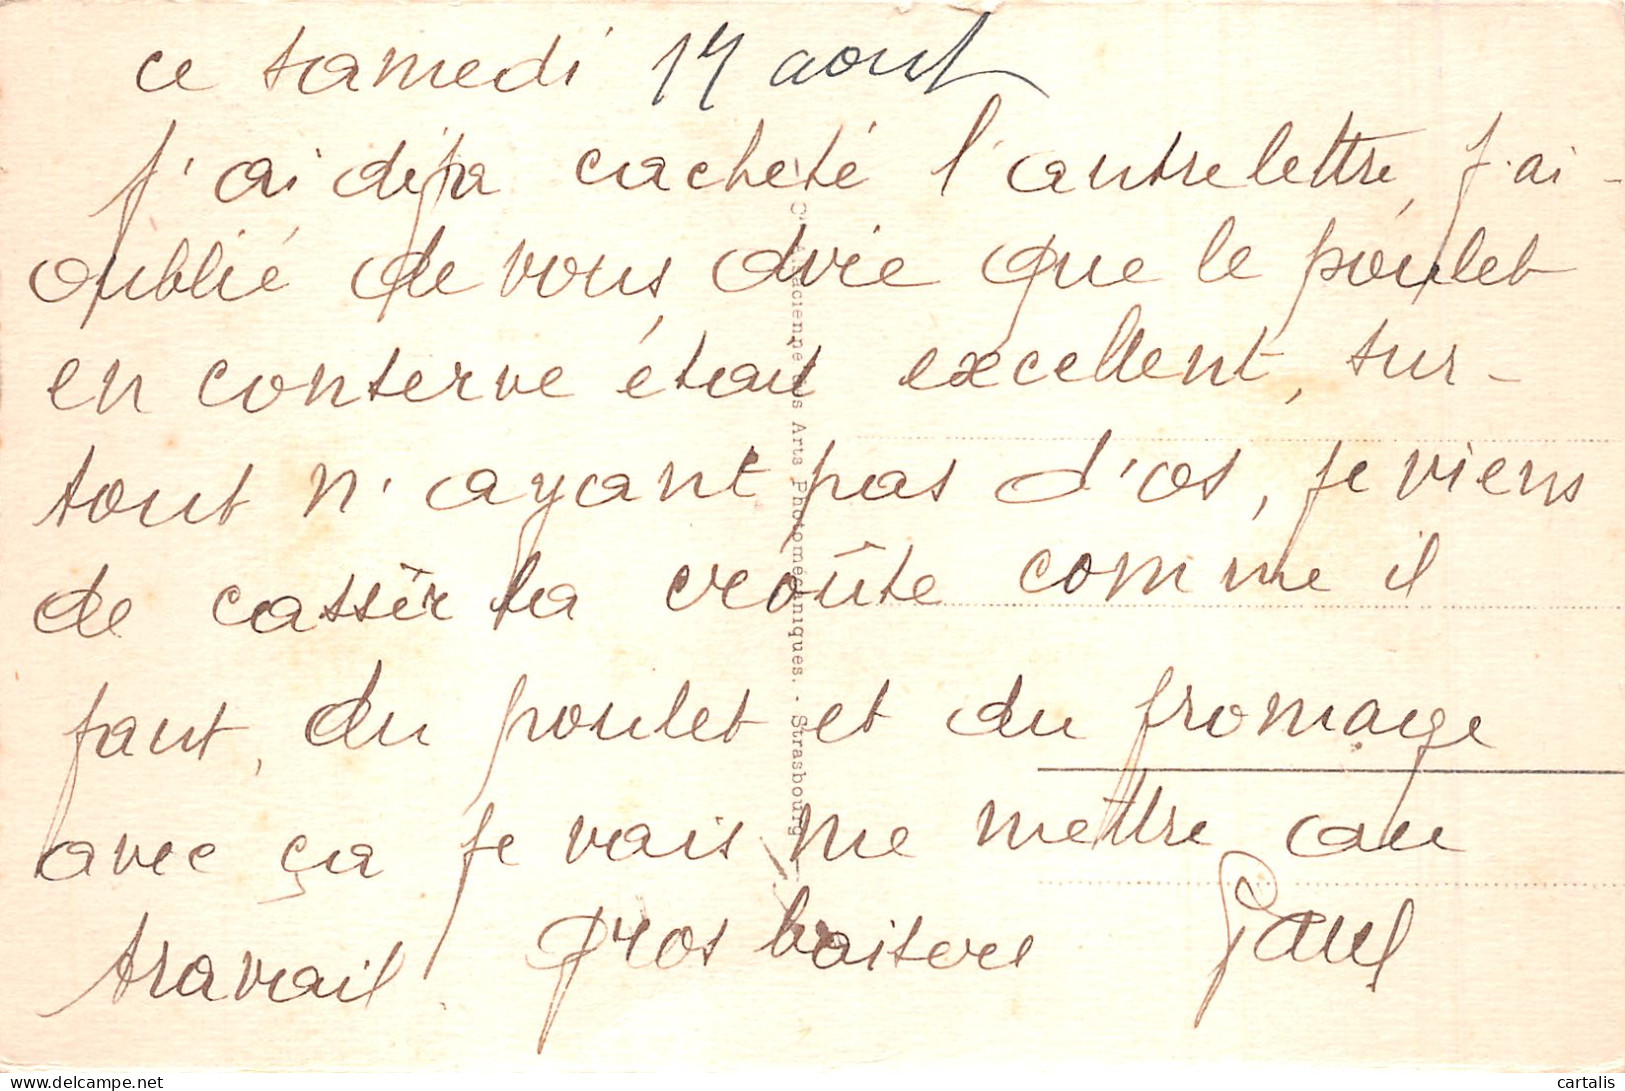 ce samedi 14 aout
j'ai déja cacheté l'autre lettre, j'ai
oublié de vous dire que le poulet
en conserve était excellent, sur-
tout n'ayant pas d'os, je viens
de cassér la croûte comme il
faut, du poulet et du fromage
avec ça je vais me mettre au
travail gros baisers Paul
Cie Alsacienne des Arts Photomécaniques. - Strasbourg
www.delcampe.net
cartalis